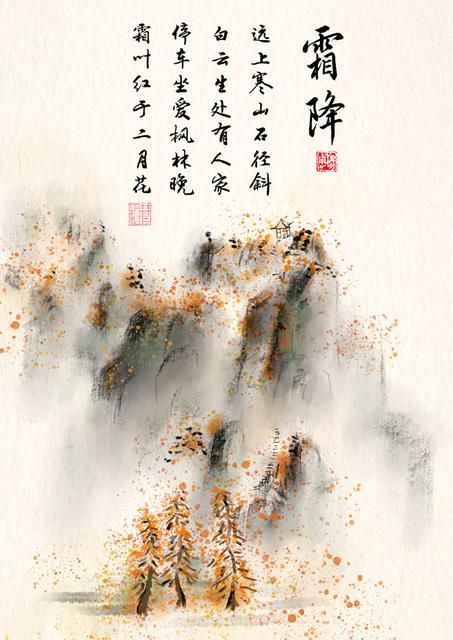 霜降
远上寒山石径斜
白云生处有人家
停车坐爱枫林晚
霜叶红于二月花